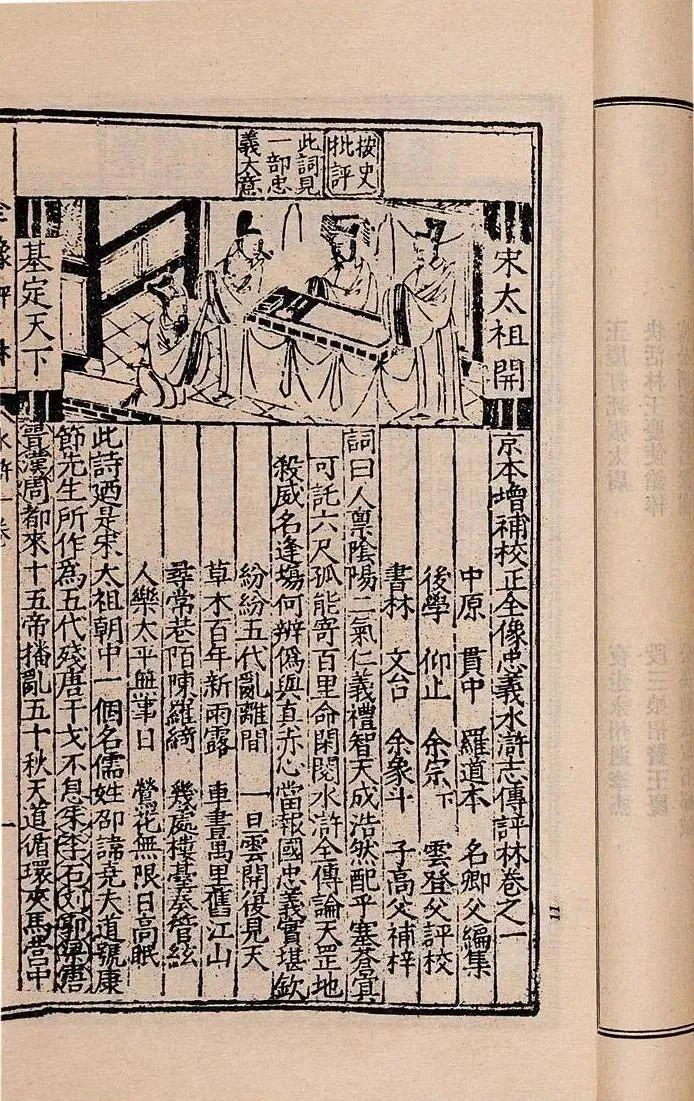 按史
批評
此詞見
一部忠
義大意
宋太祖開
基定天下
京本增補校正全像忠義水滸志傳評林卷之一
中原 貫中 羅道本 名卿父編集
後學 仰止 余宗下 雲登父評校
書林 文台 余象斗 子高父補梓
詞曰人禀陰陽二氣仁義禮智天成浩然配乎塞蒼冥
可託六尺孤能寄百里命閑閱水滸全傳論天罡地
殺威名逢塲何辨僞與真赤心當報國忠義實堪欽
紛紛五代亂離間 一旦雲開復見天
草木百年新雨露 車書萬里舊江山
尋常巷陌陳羅綺 幾處樓臺奏管絃
人樂太平無事日 鶯花無限日高眠
此詩廼是宋太祖朝中一個名儒姓邵諱堯夫道號康
節先生所作為五代殘唐干戈不息朱李石刘郭梁唐
晋漢周都來十五帝播亂五十秋天道循環夾馬營中
全像評林 水滸一卷 一
11